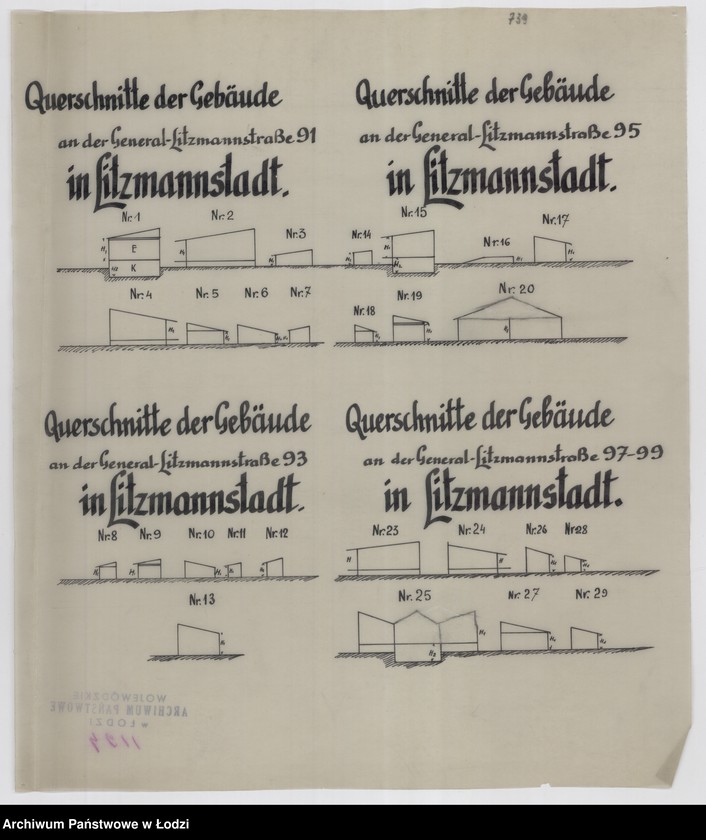 739
Querschnitte der Gebäude
an der General-Litzmannstraße 91
in Litzmannstadt.
Nr. 1 Nr. 2 Nr. 3
H₁ E K
Nr. 4 Nr. 5 Nr. 6 Nr. 7
Querschnitte der Gebäude
an der General-Litzmannstraße 95
in Litzmannstadt.
Nr. 14 Nr. 15 Nr. 16 Nr. 17
Nr. 18 Nr. 19 Nr. 20
Querschnitte der Gebäude
an der General-Litzmannstraße 93
in Litzmannstadt.
Nr. 8 Nr. 9 Nr. 10 Nr. 11 Nr. 12
Nr. 13
Querschnitte der Gebäude
an der General-Litzmannstraße 97-99
in Litzmannstadt.
Nr. 23 Nr. 24 Nr. 26 Nr 28
H H
Nr. 25 Nr. 27 Nr. 29
WOJEWÓDZKIE
ARCHIWUM PAŃSTWOWE
w ŁODZI
1194
Archiwum Państwowe w Łodzi